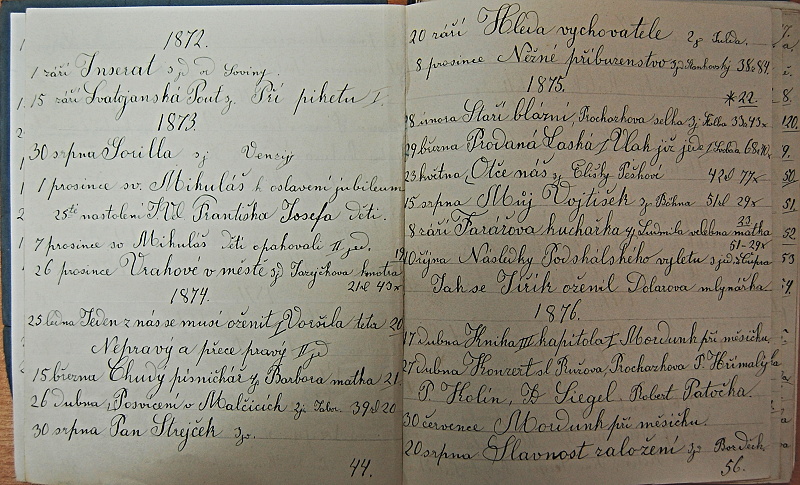 1872.
1 září Inserat sjd od Soviny.
15 září Svatojanská Pouť z. Při piketu I.
1873.
30 srpna Gorilla sj Venzyj
1 prosince sv. Mikuláš k oslavení jubileum
25ti nastolení J.Vel. Františka Josefa děti.
7 prosince sv Mikuláš děti opakovali II jed.
26 prosince Vrahové v městě sjd Javejčkova kmotra 19
21zl 43x
1874.
25 ledna Jeden z nás se musí oženit I Voršila teta 20
Nepravý a přece pravý II jed
15 března Chudý písničkář Barbora matka 21.
26 dubna, Posvícení v Malčicích Tabor. 39zl 20
30 srpna Pan Strejček
44.
20 září Hledá vychovatele 2j Fulda.
8 prosince Něžné příbuzenstvo Stankovský 38z 84.
1875.
* 22.
28 února Staří blázni, Prochazkova selka 33z 43x
29 března Prodaná Láska I, Vlak již jede I Svoboda
23 května, Otče náš Elišky Peškové 42zl 77x
15 srpna Můj Vojtíšek Böhna 51zl 29x
8 září Farářova kuchařka Ludmila velebna matka
23.
51-29x
10 října Následky Podskálského výletu sjed
Jak se Jiřík oženil Dolarova mlynářka
1876.
17 dubna Kniha III kapitola I Mordunk při měsíčku.
27 dubna Konzert sl Ruřova, Prochazkova P. Hřimalý
P. Kolín, Siegel. Robert Patočka.
30 července Mordunk při měsíčku.
20 srpna Slavnost založení
56.
120.
9.
50
51.
52
53